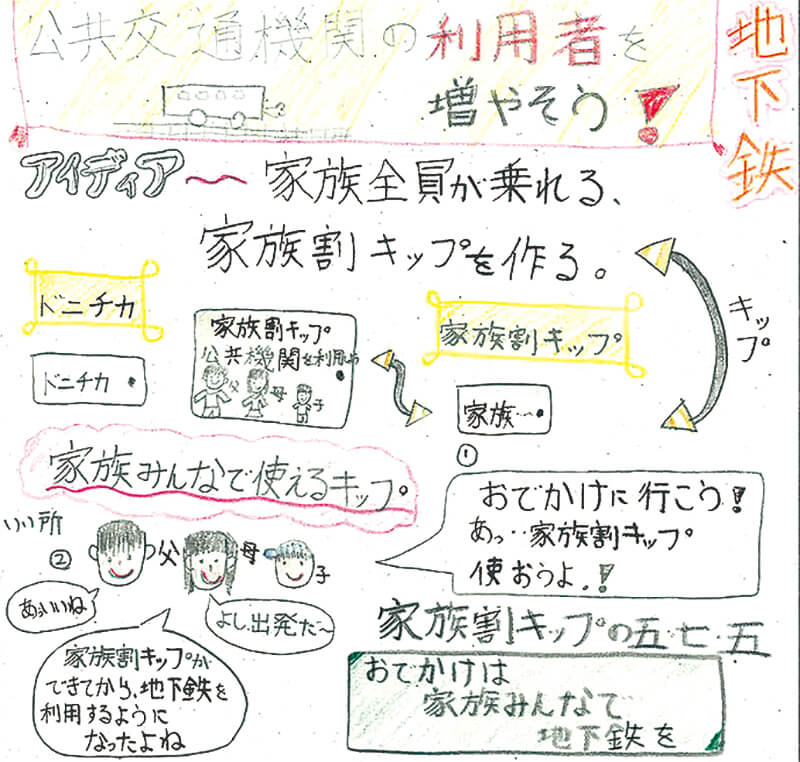 公共交通機関の利用者を
増やそう!
地下鉄
アイディア〜家族全員が乗れる、
家族割キップを作る。
ドニチカ
ドニチカ
家族割キップ
公共機関を利用
父 母 子
家族割キップ
家族…
キップ
①
家族みんなで使えるキップ
おでかけに行こう!
あっ‥家族割キップ
使おうよ.!
いい所
② 父 母 子
あぁいいね
よし出発だ〜
家族割キップが
できてから、地下鉄を
利用するように
なったよね
家族割キップの五・七・五
おでかけは
家族みんなで
地下鉄を